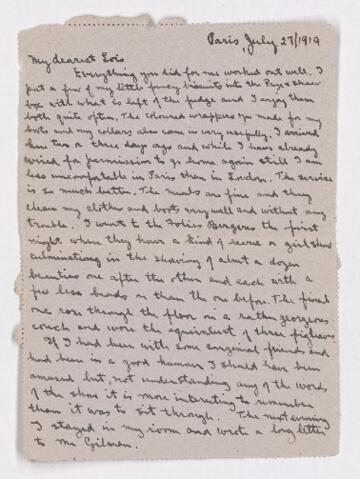 Paris July 27/1919
My dearest Lois
Everything you did for me worked out well. I
put a few of my little fancy biscuits into the
box with what is left of the fudge and I enjoy them
both quite often. The coloured wrappers you made for my
boots and my collars also come in very usefully. I arrived
here two or three days ago and while I have already
wired for permission to go home again still I am
less uncomfortable in Paris than in London. The service
is so much better. The meals are fine and they
clean my clothes and boots very well and without any
trouble. I went to the Folies Bergere the first
night when they have a kind of revue or girl show
culminating in the showing of about a dozen
beauties one after the other and each with a
few less beads on than the one before. The final
one rose through the floor on a rather gorgeous
couch and wore the equivalent of three figleaves.
If I had been with some congenial friends and
had been in a good humour I should have been
amused but, not understanding any of the words
of the show it is more interesting to remember
than it was to sit through. The next evening
I stayed in my room and wrote a long letter
to Mr Gilman.